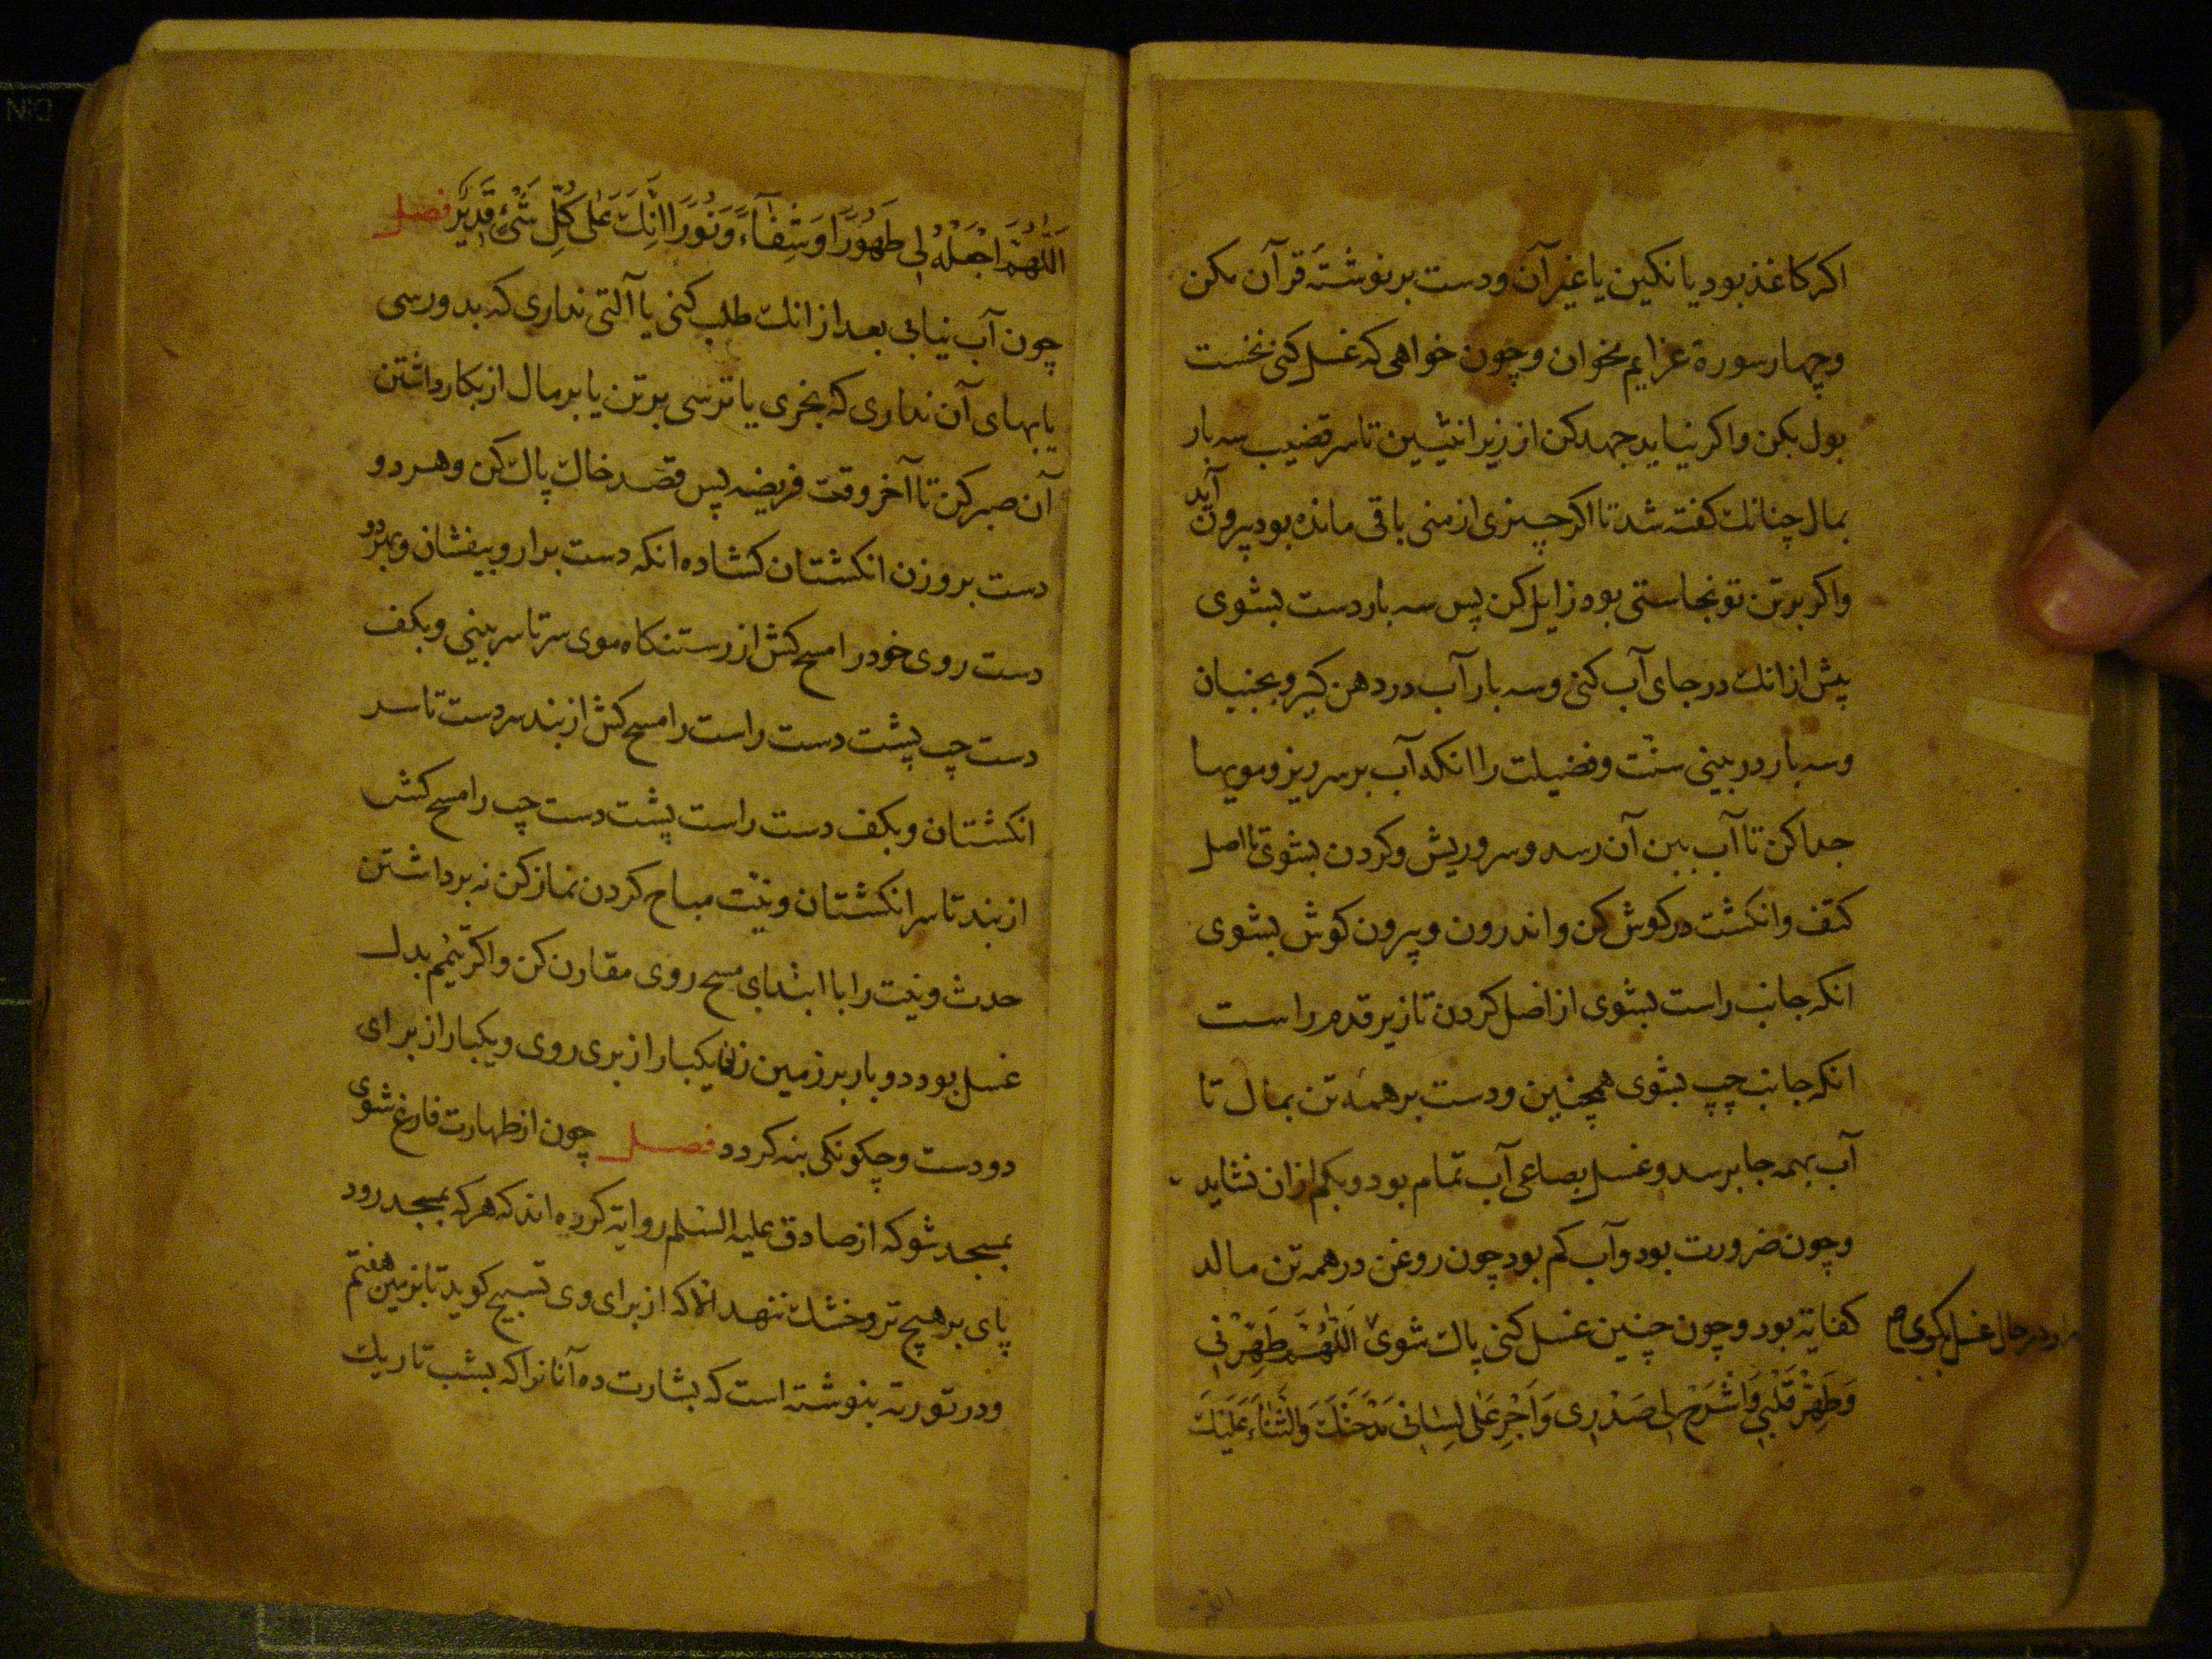 اکر کاغذ بود یا نکین یا غیر آن و دست بر نوشتهٔ قرآن مکن
و چهار سورة عزایم مخوان و چون خواهی که غسل کنی نخست
بول بکن و اکر نیاید جهد کن از زیر انثیین تا سر قضیب سه بار
بمال چنانك کفته شد تا اکر چیزی از منی باقی مانده بود بیرون آید
و اکر بر تن تو نجاستی بود زایل کن پس سه بار دست بشوی
پیش از انك در جای آب کنی و سه بار آب در دهن کیر و بجنبان
و سه بار در بینی سنّت و فضیلت را انکه آب بر سر ریز و مویها
جدا کن تا آب ببن آن رسد و سر و ریش و کردن بشوی تا اصل
کتف و انکشت در کوش کن و اندرون و بیرون کوش بشوی
انکه جانب راست بشوی از اصل کردن تا زیر قدم راست
انکه جانب چپ بشوی همچنین و دست بر همه تن بمال تا
آب بهمه جا برسد و غسل بصاعی آب تمام بود و بکم از ان نشاید
و چون ضرورت بود و آب کم بود چون روغن در همه تن مالد
کفایة بود و چون چنین غسل کنی پاك شوی اَللّٰهُمَّ طَهِّرْنِی
و در حال غسل بکوی
وَطَهِّرْ قَلْبِی وَاشْرَحْ لِی صَدْرِی وَاَجْرِ عَلٰی لِسَانِی مَدْحَتَكَ وَالثَّنَاءَ عَلَیْكَ
اَللّٰهُمَّ اجْعَلْهُ لِی طَهُورًا وَشِفَآءً وَنُورًا اِنَّكَ عَلٰی كُلِّ شَیْءٍ قَدِیرٌ فصل
چون آب نیابی بعد از انك طلب کنی یا آلتی نداری که بدو رسی
یا بهای آن نداری که بخری یا ترسی بر تن یا بر مال از بکار داشتن
آن صبر کن تا آخر وقت فریضه پس قصد خاك پاك کن و هر دو
دست برو زن انکشتان کشاده انکه دست بردار و بیفشان و بهر دو
دست روی خود را مسح کش از رستنکاه موی سر تا سر بینی و بکف
دست چپ پشت دست راست را مسح کش از بند سر دست تا سر
انکشتان و بکف دست راست پشت دست چپ را مسح کش
از بند تا سر انکشتان و نیّت مباح کردن نماز کن نه برداشتن
حدث و نیت را با ابتدای مسح روی مقارن کن و اکر تیمّم بدل
غسل بود دو بار بر زمین زن یکبار از بری روی و یکبار از برای
دو دست و چکونکی بنه کردد فصل چون از طهارت فارغ شوی
بمسجد شو که از صادق علیه السلم روایة کرده اند که هر که بمسجد رود
پای بر هیچ تر و خشك ننهد الا که از برای وی تسبیح کوید تا بزمین هفتم
و در توریة بنوشته است که بشارت ده آنانرا که بشب تاریك